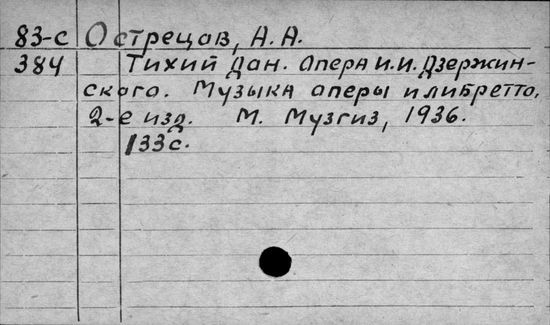 83-с Острецов, А.А.
384 Тихий Дон. Опера И.И. Дзержин-
ского. Музыка оперы и либретто.
2-е изд. М. Музгиз, 1936.
133с.